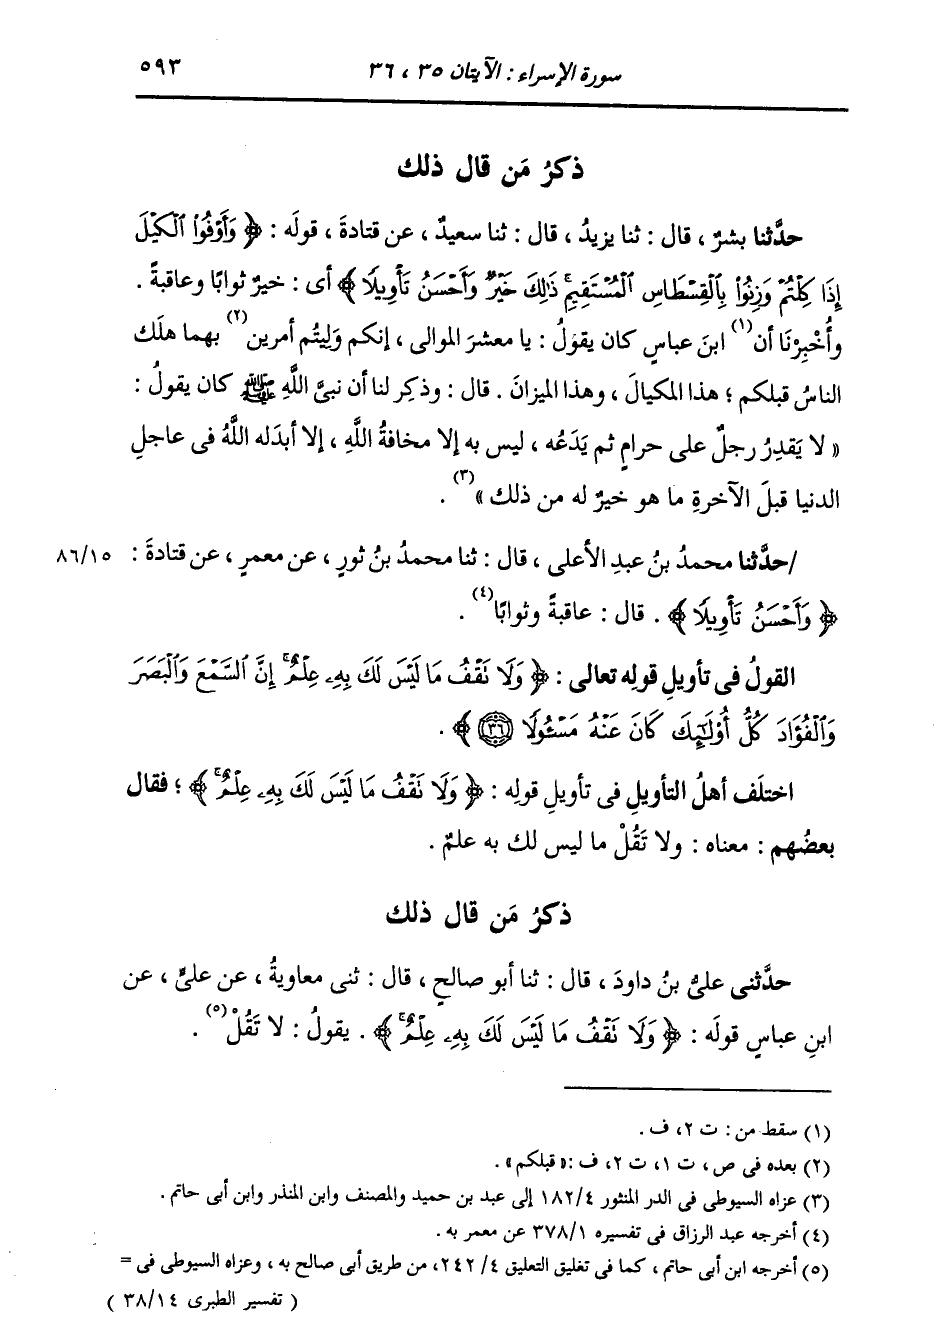 سورة الإسراء : الآيتان ٣٥ ، ٣٦
٥٩٣
ذكرُ مَن قال ذلك
حدَّثنا بشرٌ ، قال : ثنا يزيدُ ، قال : ثنا سعيدٌ ، عن قتادةَ ، قولَه : ﴿ وَأَوْفُوا۟ ٱلْكَيْلَ
إِذَا كِلْتُمْ وَزِنُوا۟ بِٱلْقِسْطَاسِ ٱلْمُسْتَقِيمِ ۚ ذَٰلِكَ خَيْرٌ وَأَحْسَنُ تَأْوِيلًا ﴾ أى : خيرٌ ثوابًا وعاقبةً .
وأُخْبِرْنَا أن(١) ابنَ عباسٍ كان يقولُ : يا معشرَ الموالى ، إنكم وَلِيتُم أمرين(٢) بهما هلَك
الناسُ قبلَكم ؛ هذا المكيالَ ، وهذا الميزانَ . قال : وذكِر لنا أن نبىَّ اللَّهِ ﷺ كان يقولُ :
« لا يَقدِرُ رجلٌ على حرامٍ ثم يَدَعُه ، ليس به إلا مخافةُ اللَّهِ ، إلا أبدَله اللَّهُ فى عاجلِ
الدنيا قبلَ الآخرةِ ما هو خيرٌ له من ذلك »(٣) .
/حدَّثنا محمدُ بنُ عبدِ الأعلى ، قال : ثنا محمدُ بنُ ثورٍ ، عن معمرٍ ، عن قتادةَ : ٨٦/١٥
﴿ وَأَحْسَنُ تَأْوِيلًا ﴾ . قال : عاقبةً وثوابًا(٤) .
القولُ فى تأويلِ قولِه تعالى : ﴿ وَلَا تَقْفُ مَا لَيْسَ لَكَ بِهِۦ عِلْمٌ ۚ إِنَّ ٱلسَّمْعَ وَٱلْبَصَرَ
وَٱلْفُؤَادَ كُلُّ أُو۟لَٰٓئِكَ كَانَ عَنْهُ مَسْـُٔولًا ٣٦ ﴾ .
اختلَف أهلُ التأويلِ فى تأويلِ قولِه : ﴿ وَلَا تَقْفُ مَا لَيْسَ لَكَ بِهِۦ عِلْمٌ ۚ ﴾ ؛ فقال
بعضُهم : معناه : ولا تَقُلْ ما ليس لك به علمٌ .
ذكرُ مَن قال ذلك
حدَّثنى علىُّ بنُ داودَ ، قال : ثنا أبو صالحٍ ، قال : ثنى معاويةُ ، عن علىٍّ ، عن
ابنِ عباسٍ قولَه : ﴿ وَلَا تَقْفُ مَا لَيْسَ لَكَ بِهِۦ عِلْمٌ ۚ ﴾ . يقولُ : لا تَقُلْ(٥) .
(١) سقط من : ت ٢، ف .
(٢) بعده فى ص ، ت ١، ت ٢، ف :« قبلكم» .
(٣) عزاه السيوطى فى الدر المنثور ١٨٢/٤ إلى عبد بن حميد والمصنف وابن المنذر وابن أبى حاتم .
(٤) أخرجه عبد الرزاق فى تفسيره ٣٧٨/١ عن معمر به .
(٥) أخرجه ابن أبى حاتم ، كما فى تغليق التعليق ٢٤٢/٤، من طريق أبى صالح به ، وعزاه السيوطى فى =
( تفسير الطبرى ٣٨/١٤ )